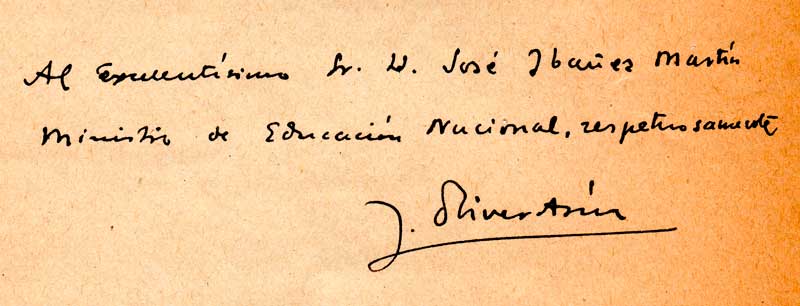 Al Excelentísimo Sr. D. José Ibañez Martín
Ministro de Educación Nacional, respetuosamente
J. Oliver Asín